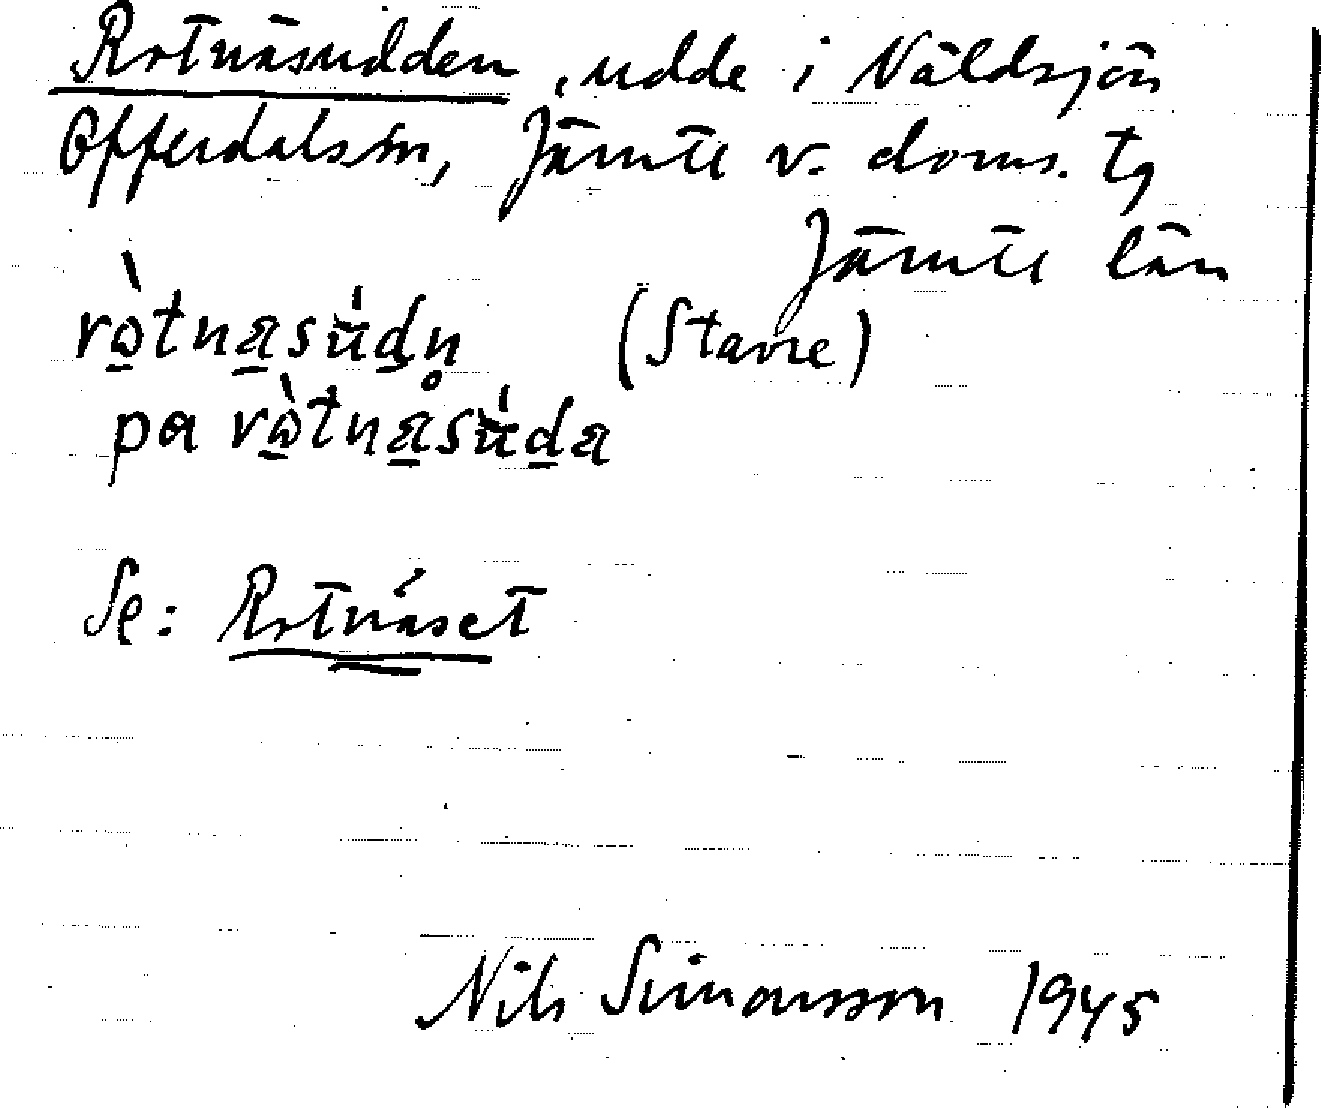 Rotnäsudden, udde i Näldsjön
Offerdals sn, Jämtl v. doms. tg
Jämtl län
rὼtnæsúdn̥ (Stavre)
pa rὼtnæsúdæ
Se: Rotnäset
Nils Simonsson 1945